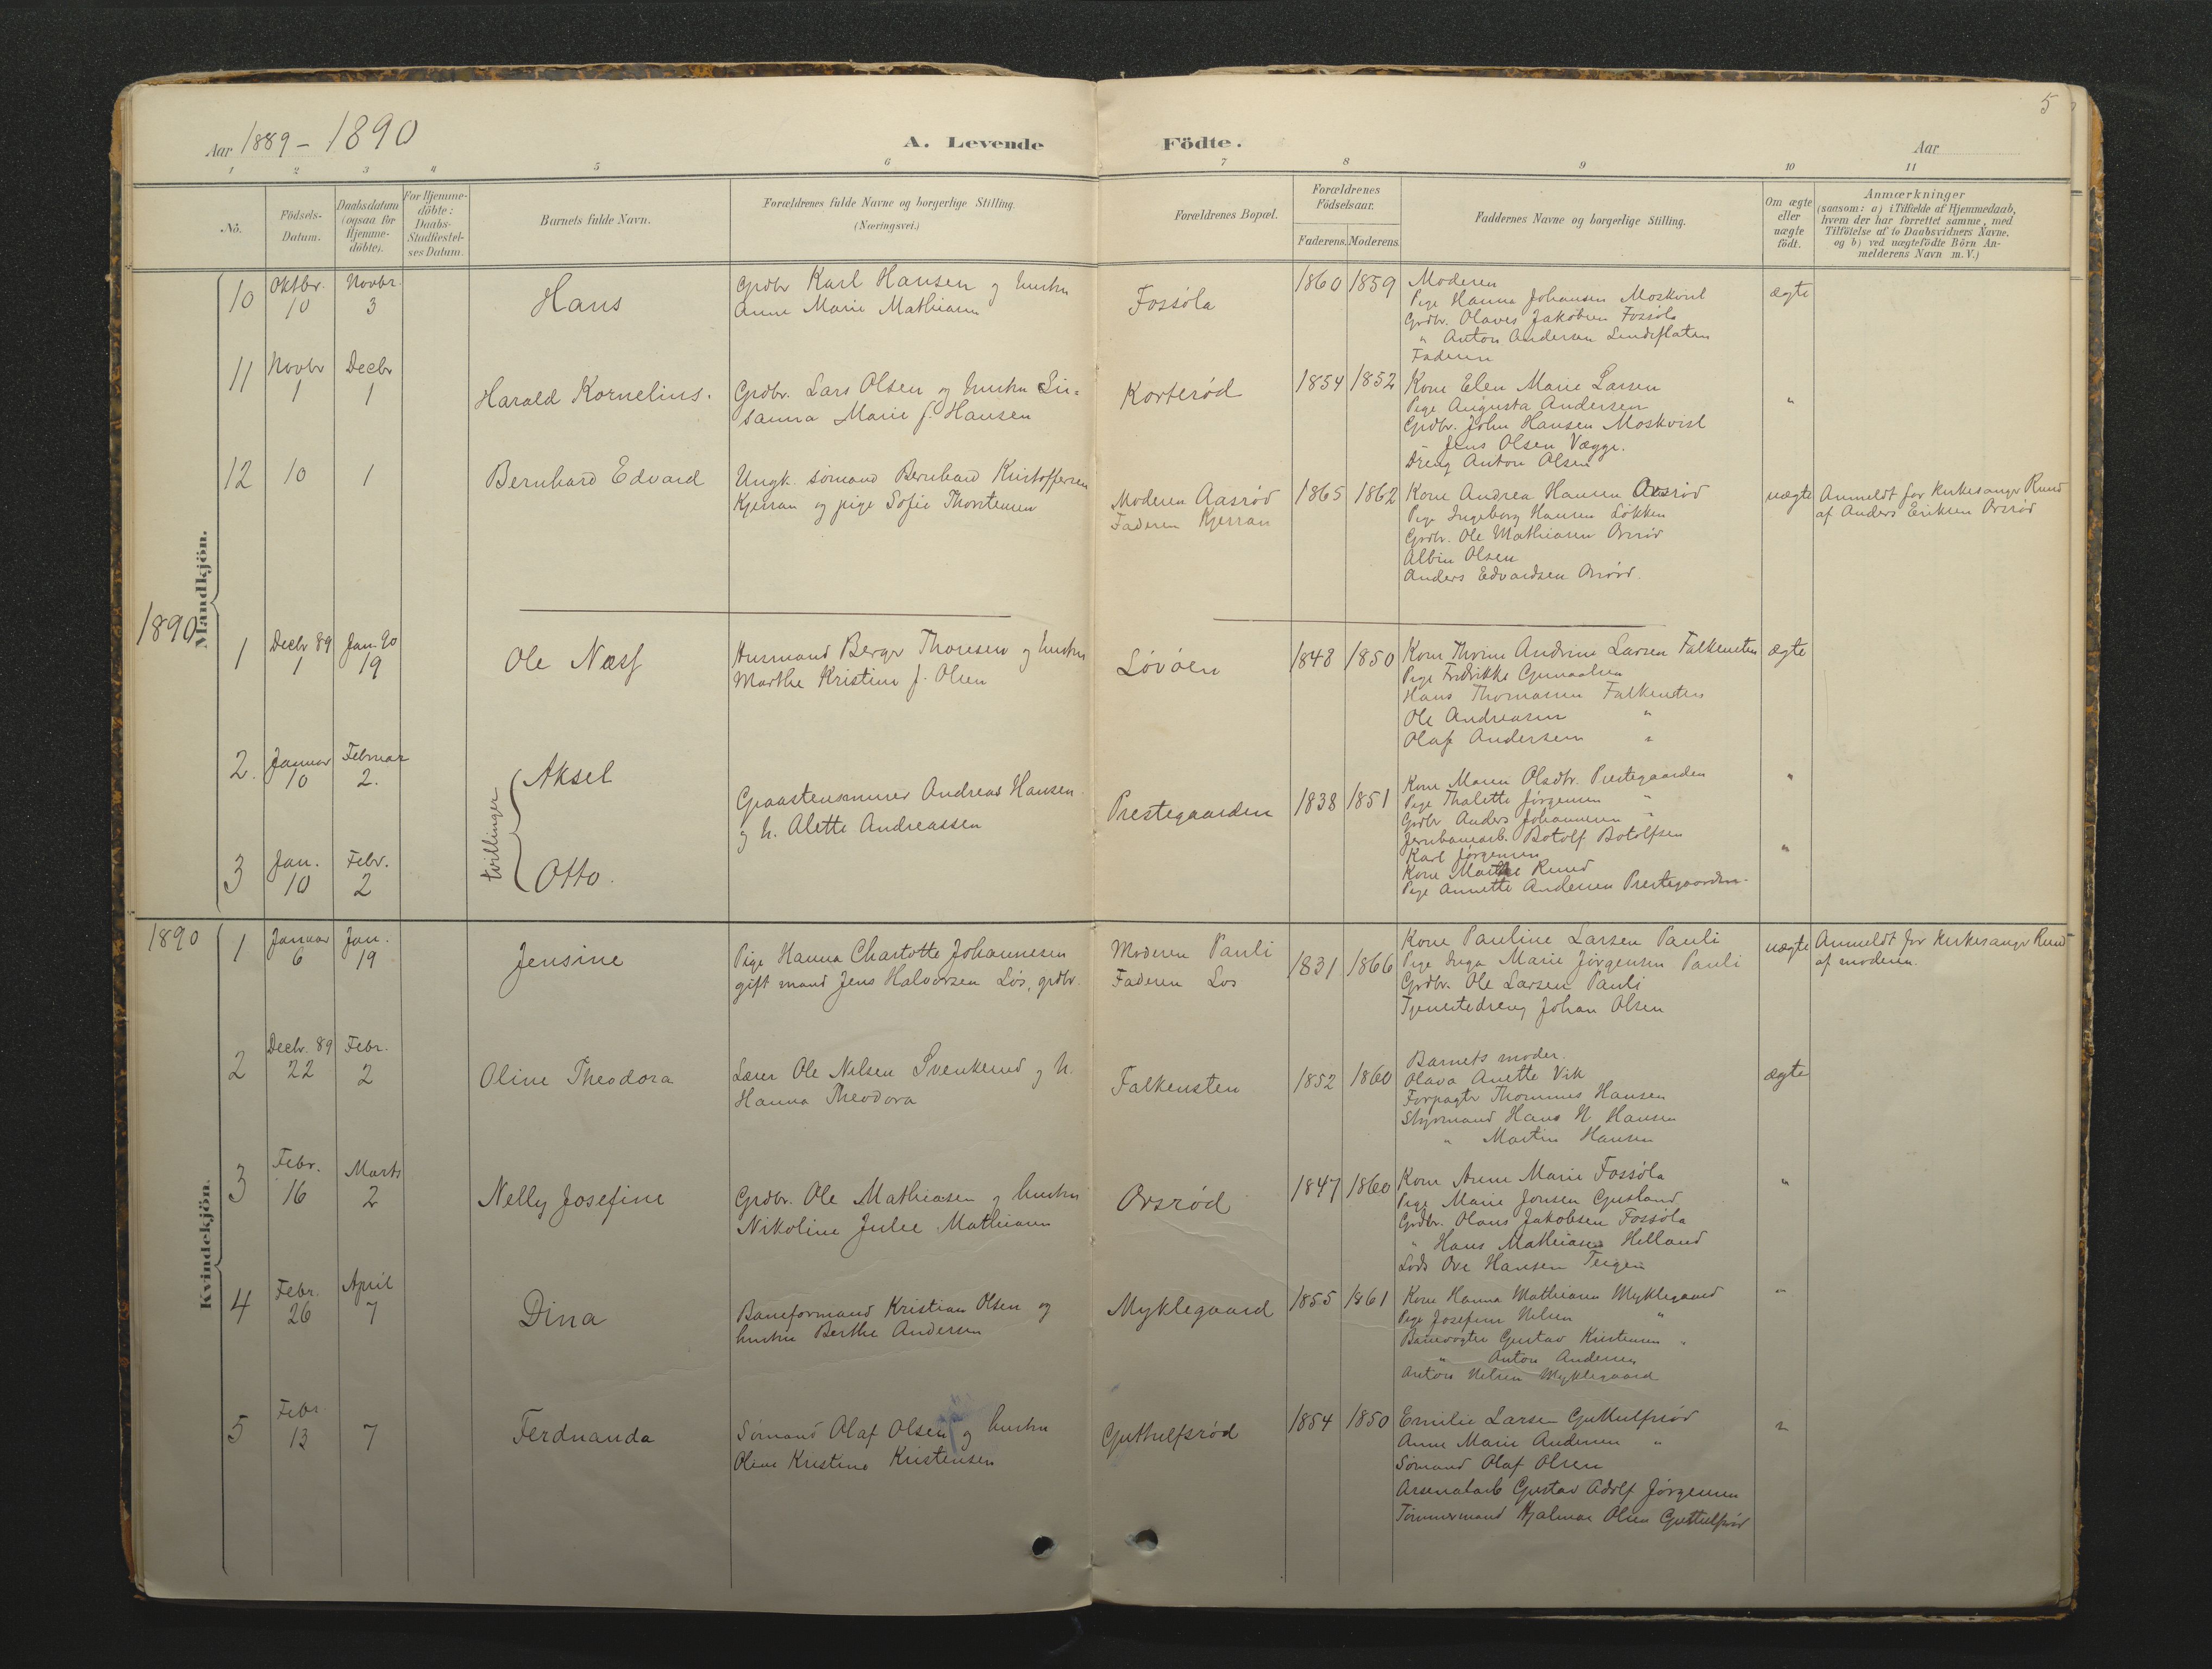 5
Aar 1889 - 1890
A. Levende Födte.
Aar
1 2 3 4 5 6 7 8 9 10 11
No.
Födsels-Datum.
Daabsdatum (ogsaa for Hjemme-döbte).
For Hjemme-döbte: Daabs-Stadfæstel-ses Datum.
Barnets fulde Navn.
Forældrenes fulde Navne og borgerlige Stilling.
(Næringsvei.)
Forældrenes Bopæl.
Forældrenes Födselsaar.
Faderens. Moderens.
Faddernes Navne og borgerlige Stilling.
Om ægte eller uægte födt.
Anmærkninger
(saasom: a) i Tilfælde af Hjemmedaab,
hvem der har forrettet samme, med
Tilföielse af to Daabsvidners Navne,
og b) ved uægtefödte Börn An-
melderens Navn m. V.)
Mandkjön.
10 Oktbr. 10 Novbr. 3
Hans
Grdbr Karl Hansen og hustru
Anne Marie Mathiasen
Fossöla
1860 1859
Moderen
Pige Hanna Johansen Moskvil
Grdbr. Olaves Jakobsen Fossöla
" Anton Andersen Lundeflaten
Faderen
ægte
11 Novbr 1 Decbr 1
Harald Kornelius.
Grdbr. Lars Olsen og hustru Su=
sanna Marie f. Hansen
Korterød
1854 1852
Kone Elen Marie Larsen
Pige Augusta Andersen
Grdbr. John Hansen Moskvil
- Jens Olsen Vægge.
Dreng Anton Olsen
"
12 10 1
Bernhard Edvard
Ungk. sömand Bernhard Kristoffersen
Kjerran og pige Sofie Thorstensen
Moderen Aasröd
Faderen Kjerran
1865 1862
Kone Andrea Hansen Orsröd
Pige Ingeborg Hansen Lökken
Grdbr. Ole Mathiasen Orsröd
Albin Olsen
Anders Edvardsen Orsröd.
uægte
Anmeldt for kirkesanger Rund
af Anders Eriksen Orsröd
1890
1 Decbr 89 1 Jan. 90 19
Ole Næss
Husmand Berger Thoresen og hustru
Marthe Kristine f. Olsen
Lövöen
1848 1850
Kone Thrine Andrine Larsen Falkensten
Pige Fredrikke Gunnalsen
Hans Thomassen Falkensten
Ole Andreasen "
Olaf Andersen "
ægte
2. Januar 10 Februar 2.
tvillinger
Aksel
Graastensmurer Andreas Hansen
og h. Alette Andreassen
Prestegaarden
1838 1851
Kone Maren Olsdtr. Prestegaarden
Pige Thalette Jörgensen "
Grdbr Anders Johannesen "
Jernbanearb. Botolf Botolfsen
Karl Jörgensen
Kone Marthe Rund
Pige Annette Andersen Prestegaarden.
"
3 Jan. 10 Febr. 2
Otto.
"
1890
Kvindekjön.
1 Januar 6 Jan. 19
Jensine
Pige Hanna Charlotte Johannesen
gift mand Jens Halvorsen Lös, grdbr.
Moderen Pauli
Faderen Los
1831 1866
Kone Pauline Larsen Pauli
Pige Inga Marie Jörgensen Pauli
Grdbr. Ole Larsen Pauli
Tjenestedreng Johan Olsen
uægte
Anmeldt for kirkesanger Rund
af moderen.
2 Decbr. 89 22 Febr. 2
Oline Theodora
Lærer Ole Nilsen Svenkerud og h.
Hanna Theodora
Falkensten
1852 1860
Barnets moder.
Olava Anette Vik
Forpagter Thommes Hansen
Styrmand Hans N. Hansen
" Martin Hansen
ægte
3 Febr. 16 Marts 2
Nelly Josefine
Grdbr. Ole Mathiasen og hustru
Nikoline Julie Mathiasen
Orsröd
1847 1860
Kone Anne Marie Fossöla
Pige Marie Jonsen Gusland
Grdbr. Olaus Jakobsen Fossöla
" Hans Mathiasen Helland
Lods Ove Hansen Teigen
"
4 Febr. 26 April 7
Dina
Baneformand Kristian Olsen og
hustru Berthe Andersen
Myklegaard
1855 1861
Kone Hanna Mathiasen Myklegaard
Pige Josefine Nilsen "
Banevogter Gustav Kristensen "
" Anton Andersen
Anton Nilsen Myklegaard
"
5 Febr 13 7
Ferdnanda
Sömand Olaf Olsen og hustru
Oline Kristine Kristensen
Guthulfsröd
1854 1850
Emilie Larsen Guthulfsröd
Anne Marie Andersen "
Sömand Olaf Olsen
Arsenalarb Gustav Adolf Jörgensen
Tömmermand Hjalmar Olsen Guthulfsröd
"